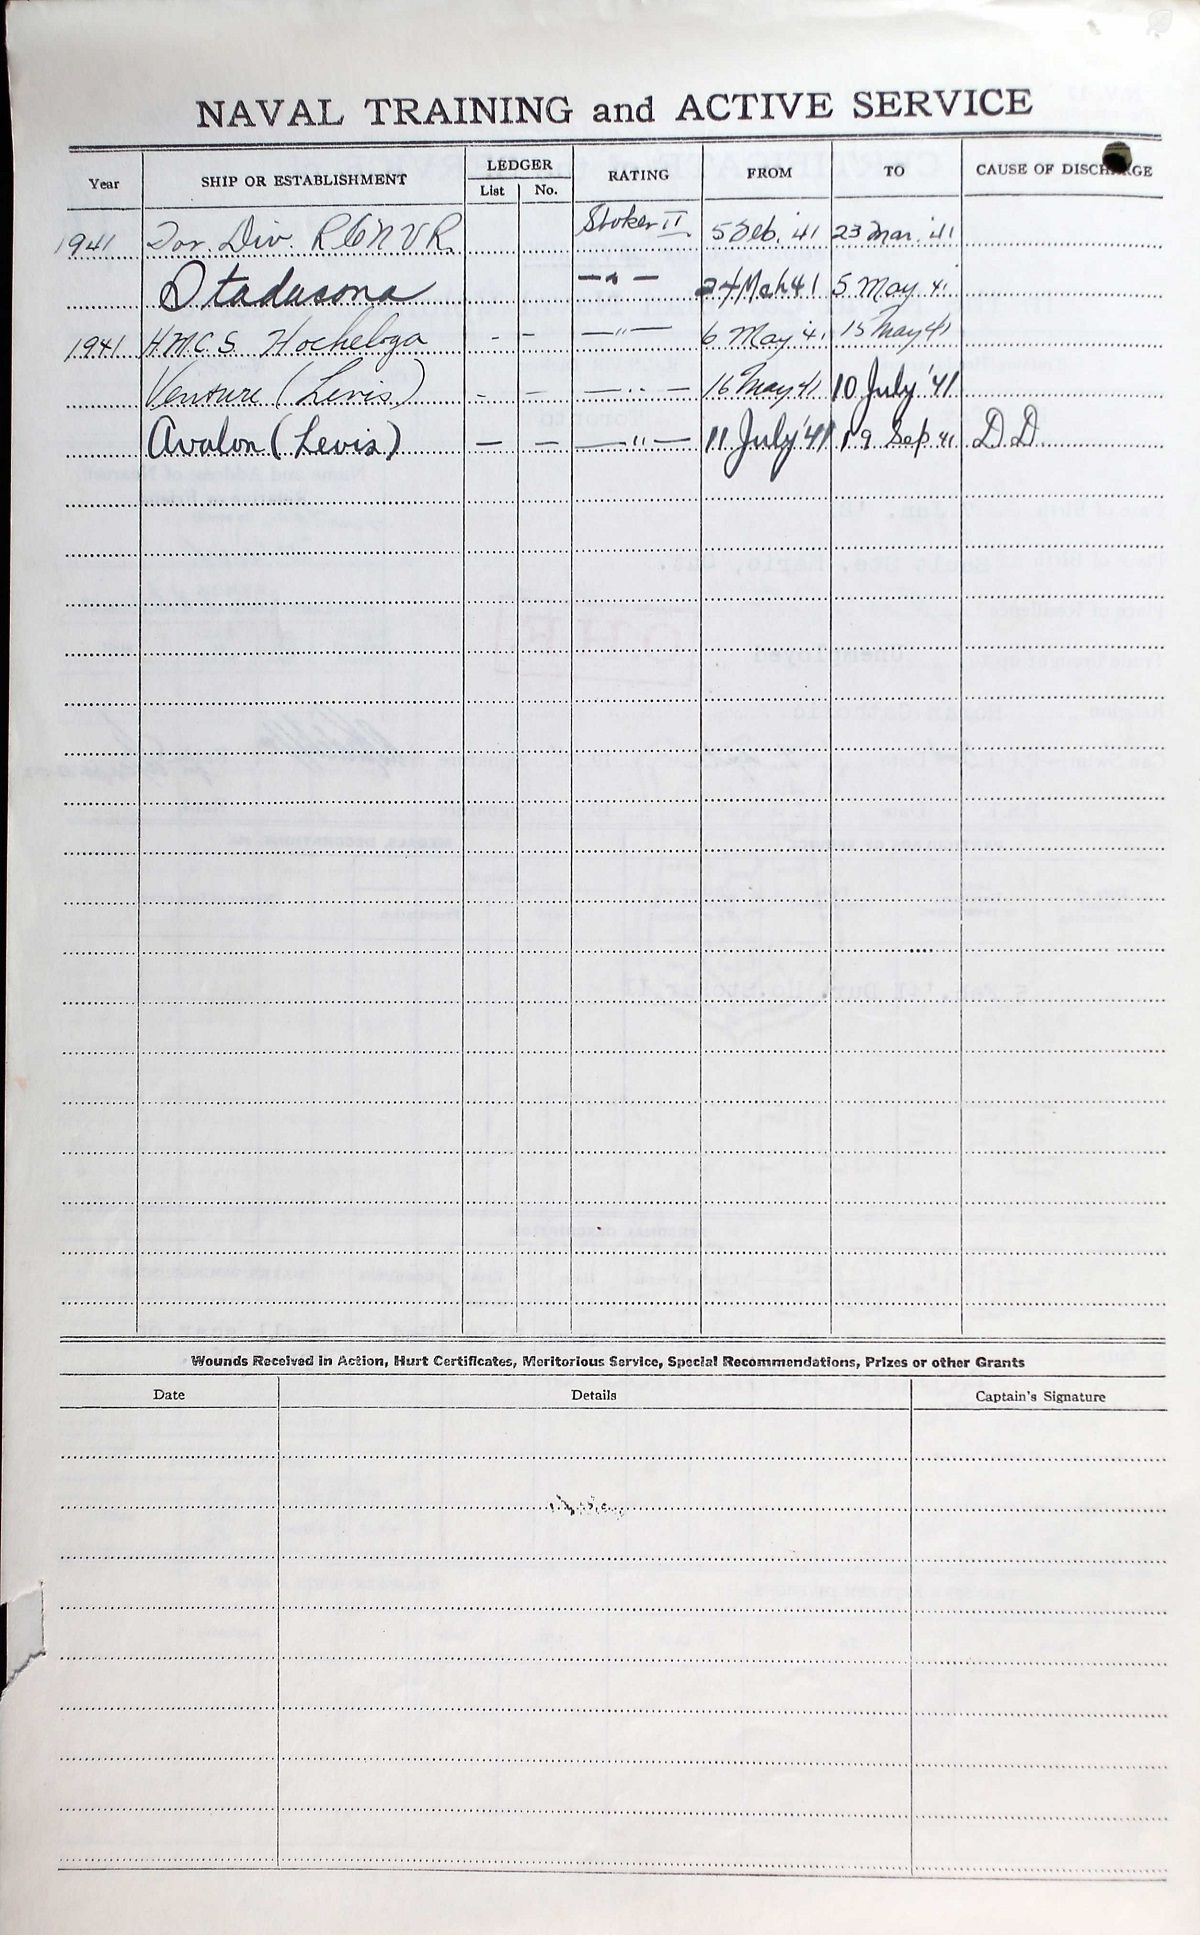 NAVAL TRAINING and ACTIVE SERVICE
Year SHIP OR ESTABLISHMENT LEDGER List No. RATING FROM TO CAUSE OF DISCHARGE
1941 Tor. Div. RCNVR. Stoker II 5 Feb. '41 23 Mar. '41
Stadacona — " — 24 Mch 41 5 May 41
1941 H.M.C.S. Hochelaga - - — " — 6 May '41 15 May 41
Venture (Levis) - - — " — 16 May 41 10 July '41
Avalon (Levis) — — — " — 11 July '41 19 Sep 41 D.D.
Wounds Received in Action, Hurt Certificates, Meritorious Service, Special Recommendations, Prizes or other Grants
Date Details Captain's Signature